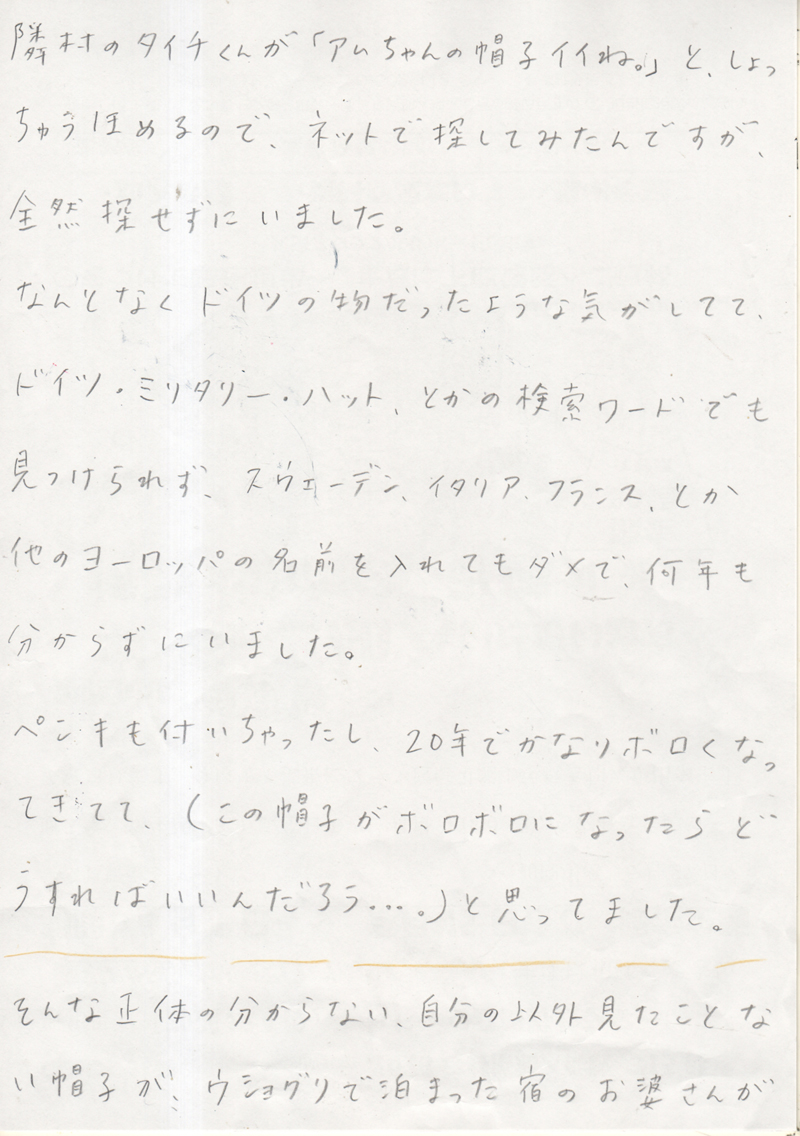 隣村のタイチくんが「アムちゃんの帽子イイね。」と、しょっ
ちゅうほめるので、ネットで探してみたんですが、
全然探せずにいました。
なんとなくドイツの物だったような気がしてて、
ドイツ・ミリタリー・ハット、とかの検索ワードでも
見つけられず、スウェーデン、イタリア、フランス、とか
他のヨーロッパの名前を入れてもダメで、何年も
分からずにいました。
ペンキも付いちゃったし、20年でかなりボロくなっ
てきてて、(この帽子がボロボロになったらど
うすればいいんだろう...。)と思ってました。
そんな正体の分からない、自分の以外見たことな
い帽子が、ウショグリで泊まった宿のお婆さんが